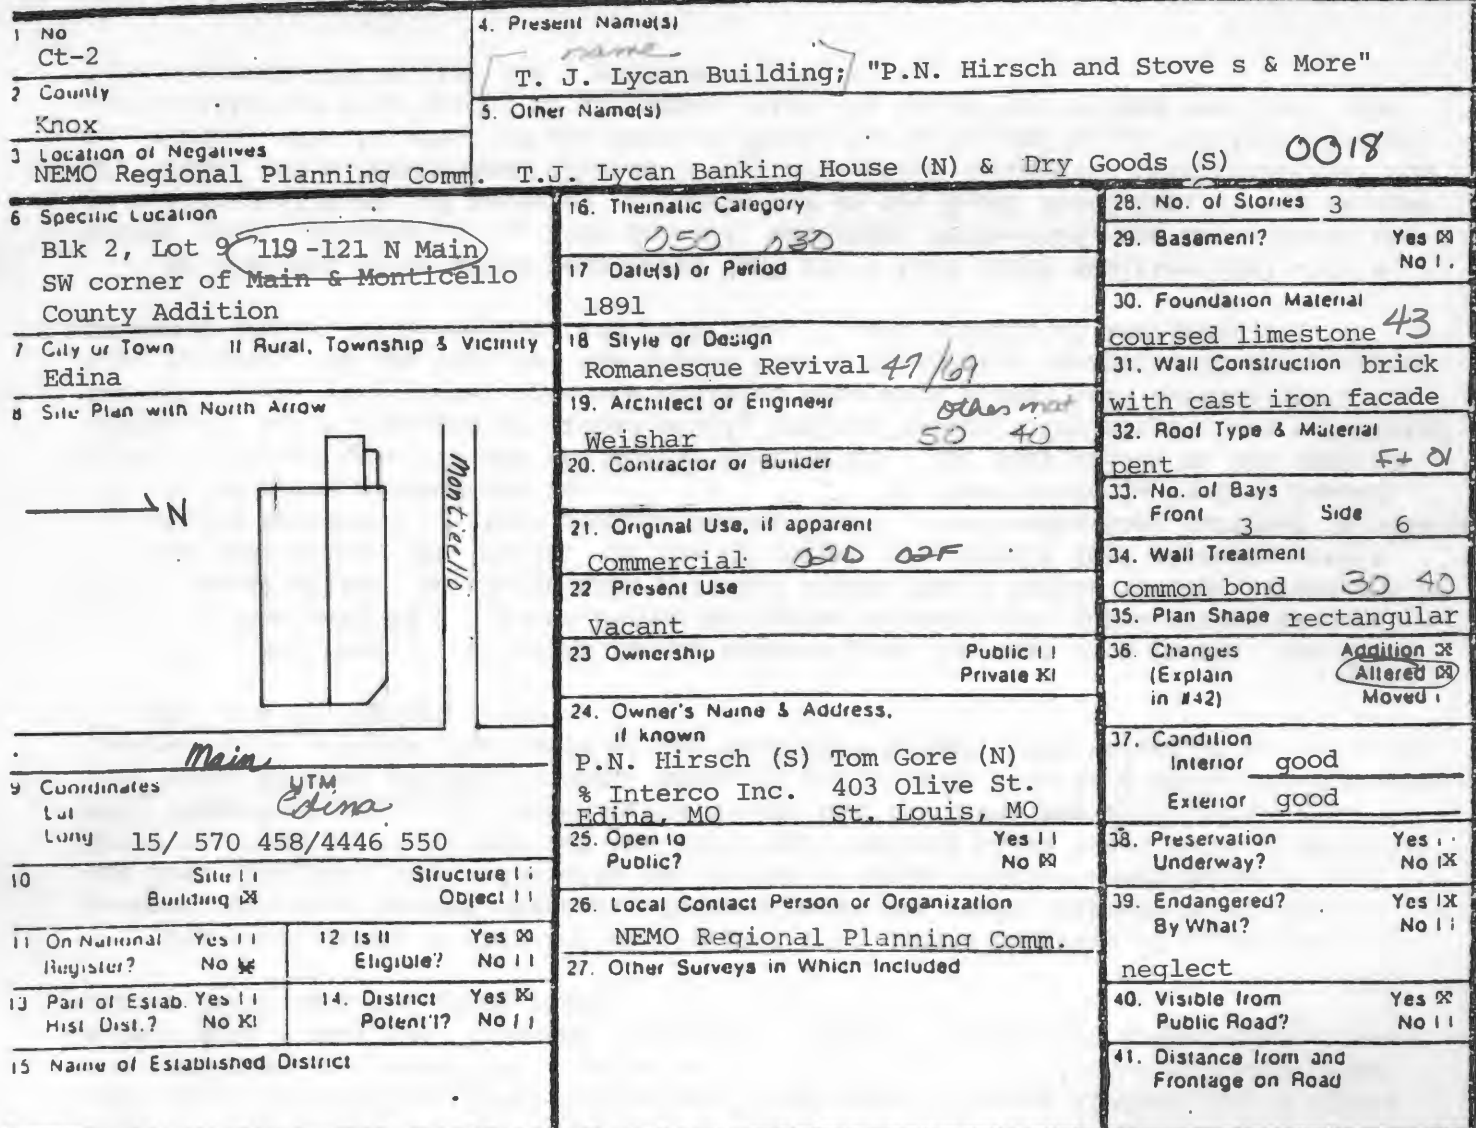 1 No
Ct-2
2 County
Knox
3 Location of Negatives
NEMO Regional Planning Comm.
4. Present Name(s)
name
T. J. Lycan Building; "P.N. Hirsch and Stove s & More"
5. Other Name(s)
0018
T.J. Lycan Banking House (N) & Dry Goods (S)
6 Specific Location
Blk 2, Lot 9 119-121 N Main
SW corner of Main & Monticello
County Addition
7 City or Town If Rural, Township & Vicinity
Edina
8 Site Plan with North Arrow
N
Monticello
Main
9 Coordinates UTM
Edina
Lat
Long 15/ 570 458/4446 550
10 Site Structure
Building ☒ Object
11 On National Register? Yes No ☒
12 Is It Eligible? Yes ☒ No
13 Part of Estab. Hist Dist.? Yes No ☒
14. District Potent'l? Yes ☒ No
15 Name of Established District
16. Thematic Category
050 030
17 Date(s) or Period
1891
18 Style or Design
Romanesque Revival 47/69
19. Architect or Engineer
other mat
Weishar 50 40
20. Contractor or Builder
21. Original Use, if apparent
Commercial 02D 02F
22 Present Use
Vacant
23 Ownership Public
Private ☒
24. Owner's Name & Address,
if known
P.N. Hirsch (S) Tom Gore (N)
% Interco Inc. 403 Olive St.
Edina, MO St. Louis, MO
25. Open to Yes
Public? No ☒
26. Local Contact Person or Organization
NEMO Regional Planning Comm.
27. Other Surveys in Which Included
28. No. of Stories 3
29. Basement? Yes ☒
No
30. Foundation Material
coursed limestone 43
31. Wall Construction brick
with cast iron facade
32. Roof Type & Material
pent Ft 01
33. No. of Bays
Front 3 Side 6
34. Wall Treatment
Common bond 30 40
35. Plan Shape rectangular
36. Changes Addition ☒
(Explain Altered ☒
in #42) Moved
37. Condition
Interior good
Exterior good
38. Preservation Yes
Underway? No ☒
39. Endangered? Yes ☒
By What? No
neglect
40. Visible from Yes ☒
Public Road? No
41. Distance from and
Frontage on Road